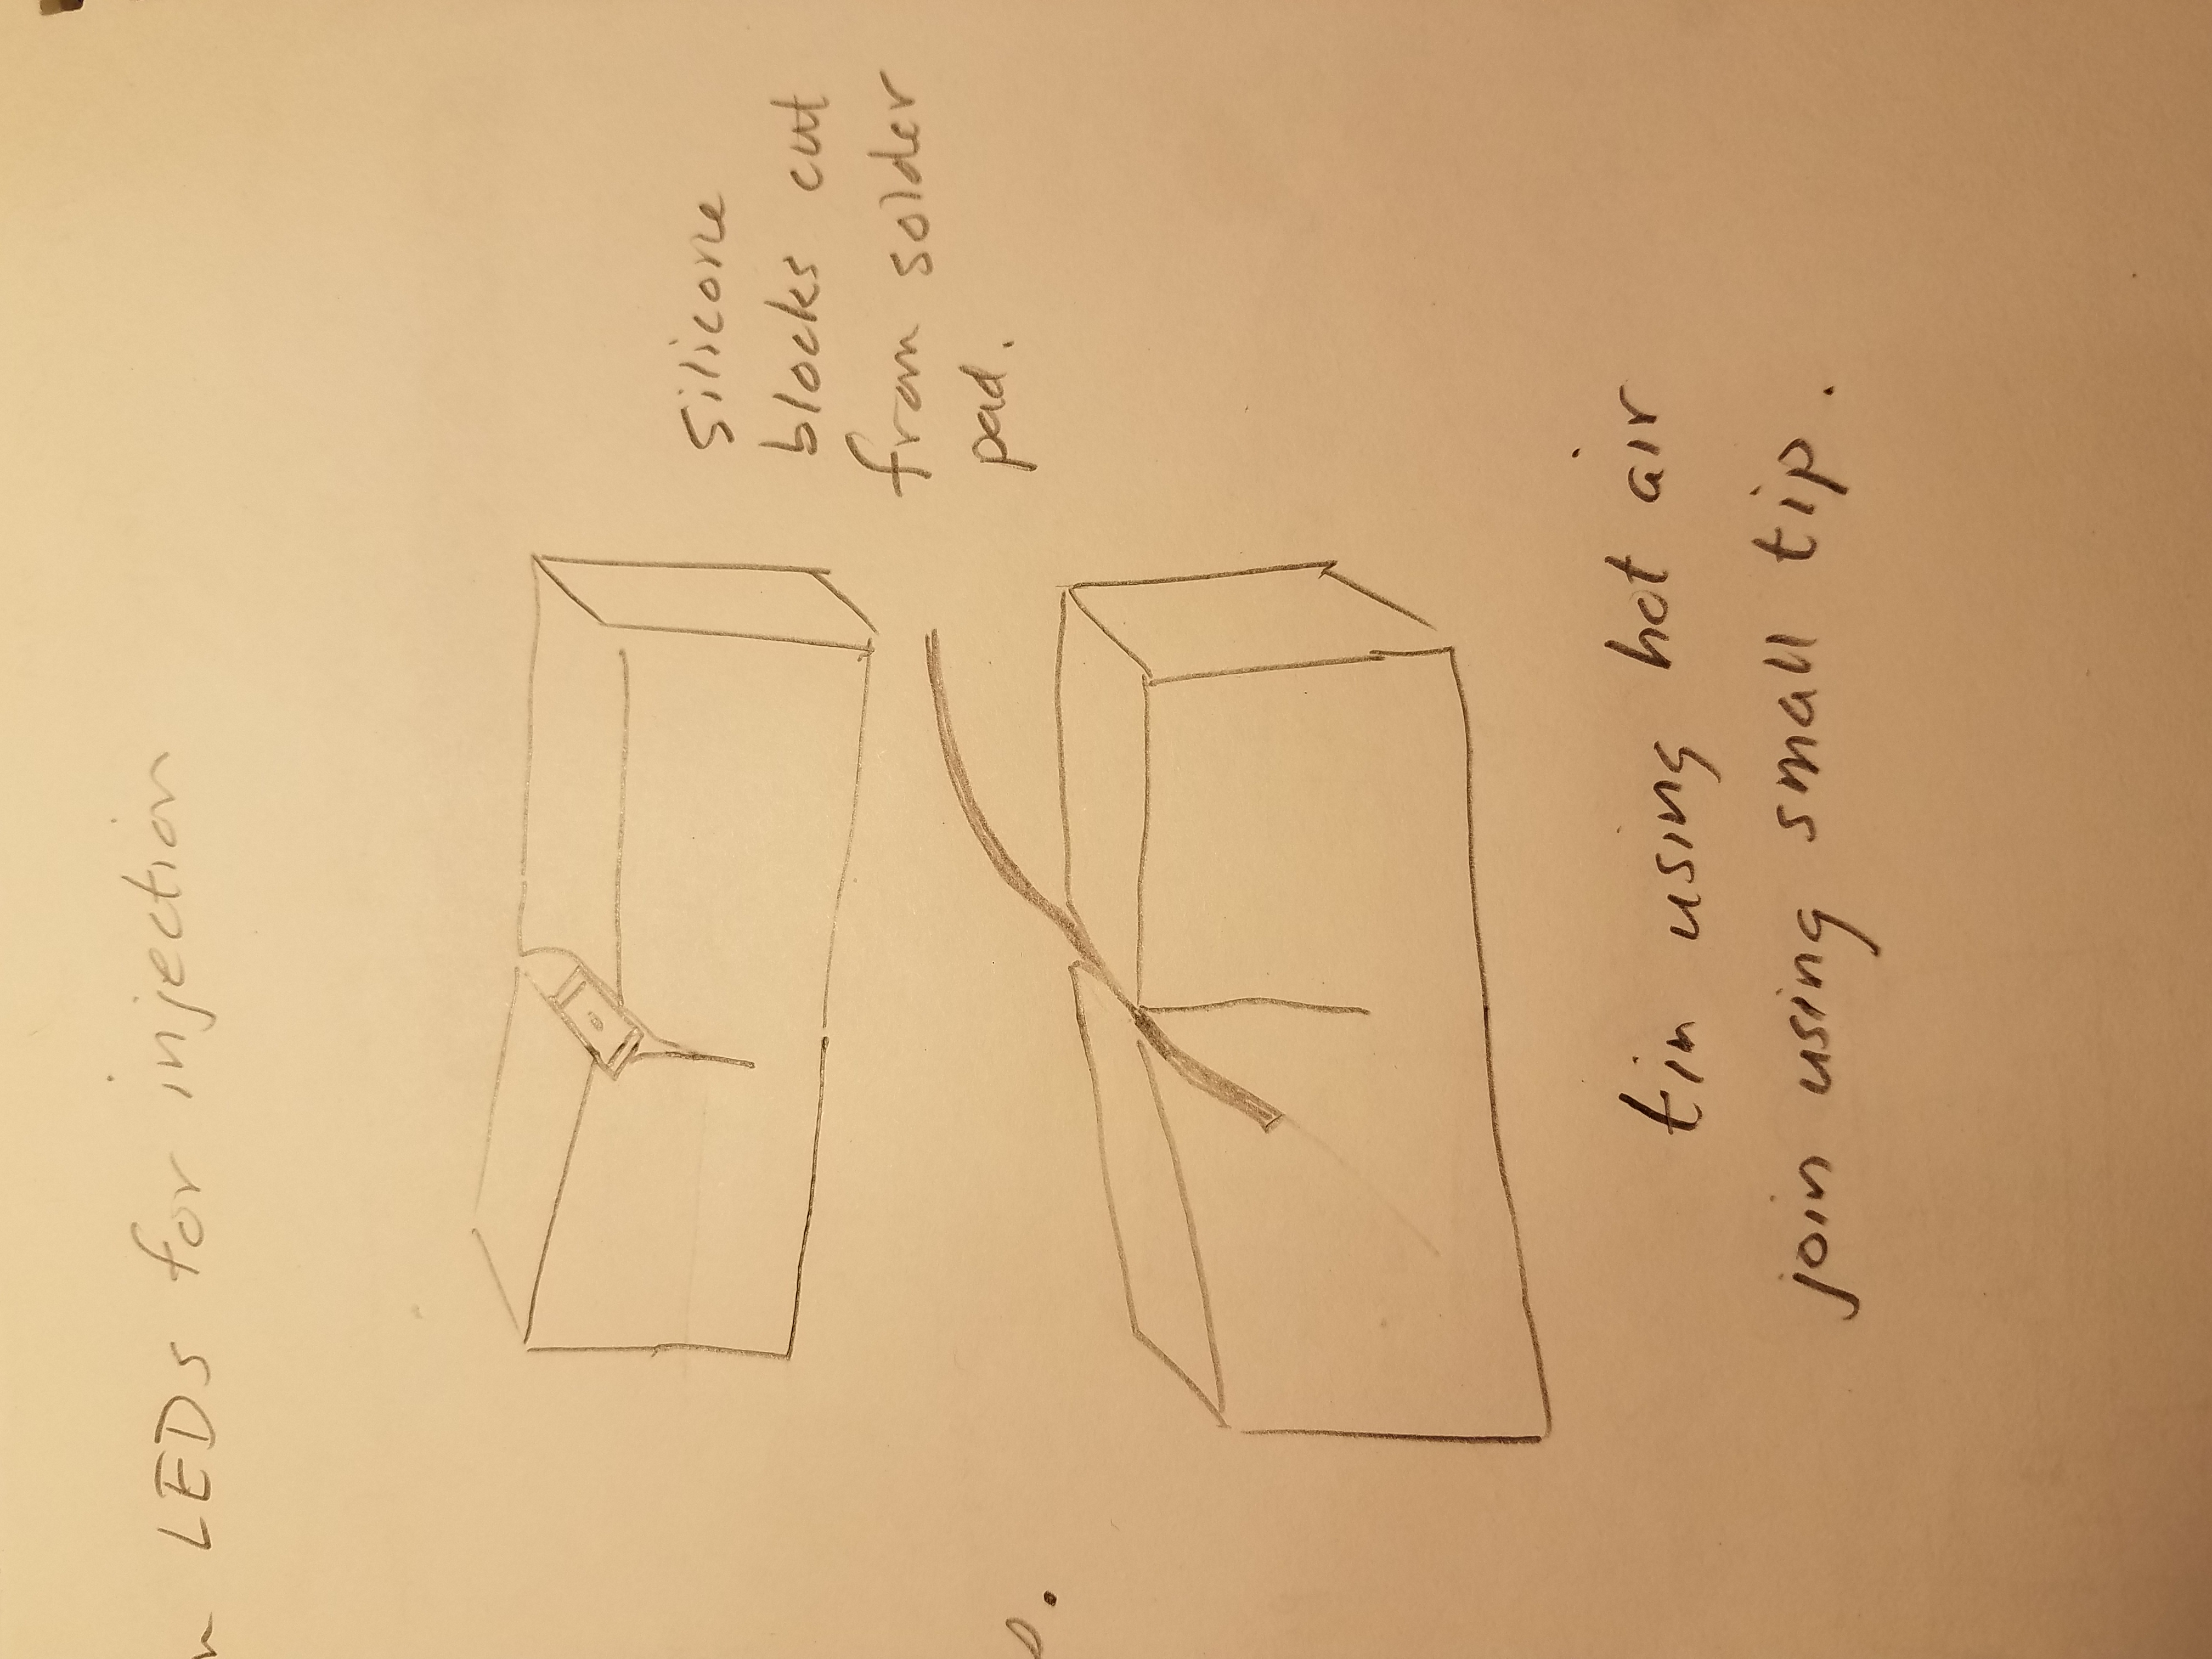 LEDs for injection
silicone
blocks cut
from solder
pad.
tin using hot air
join using small tip.